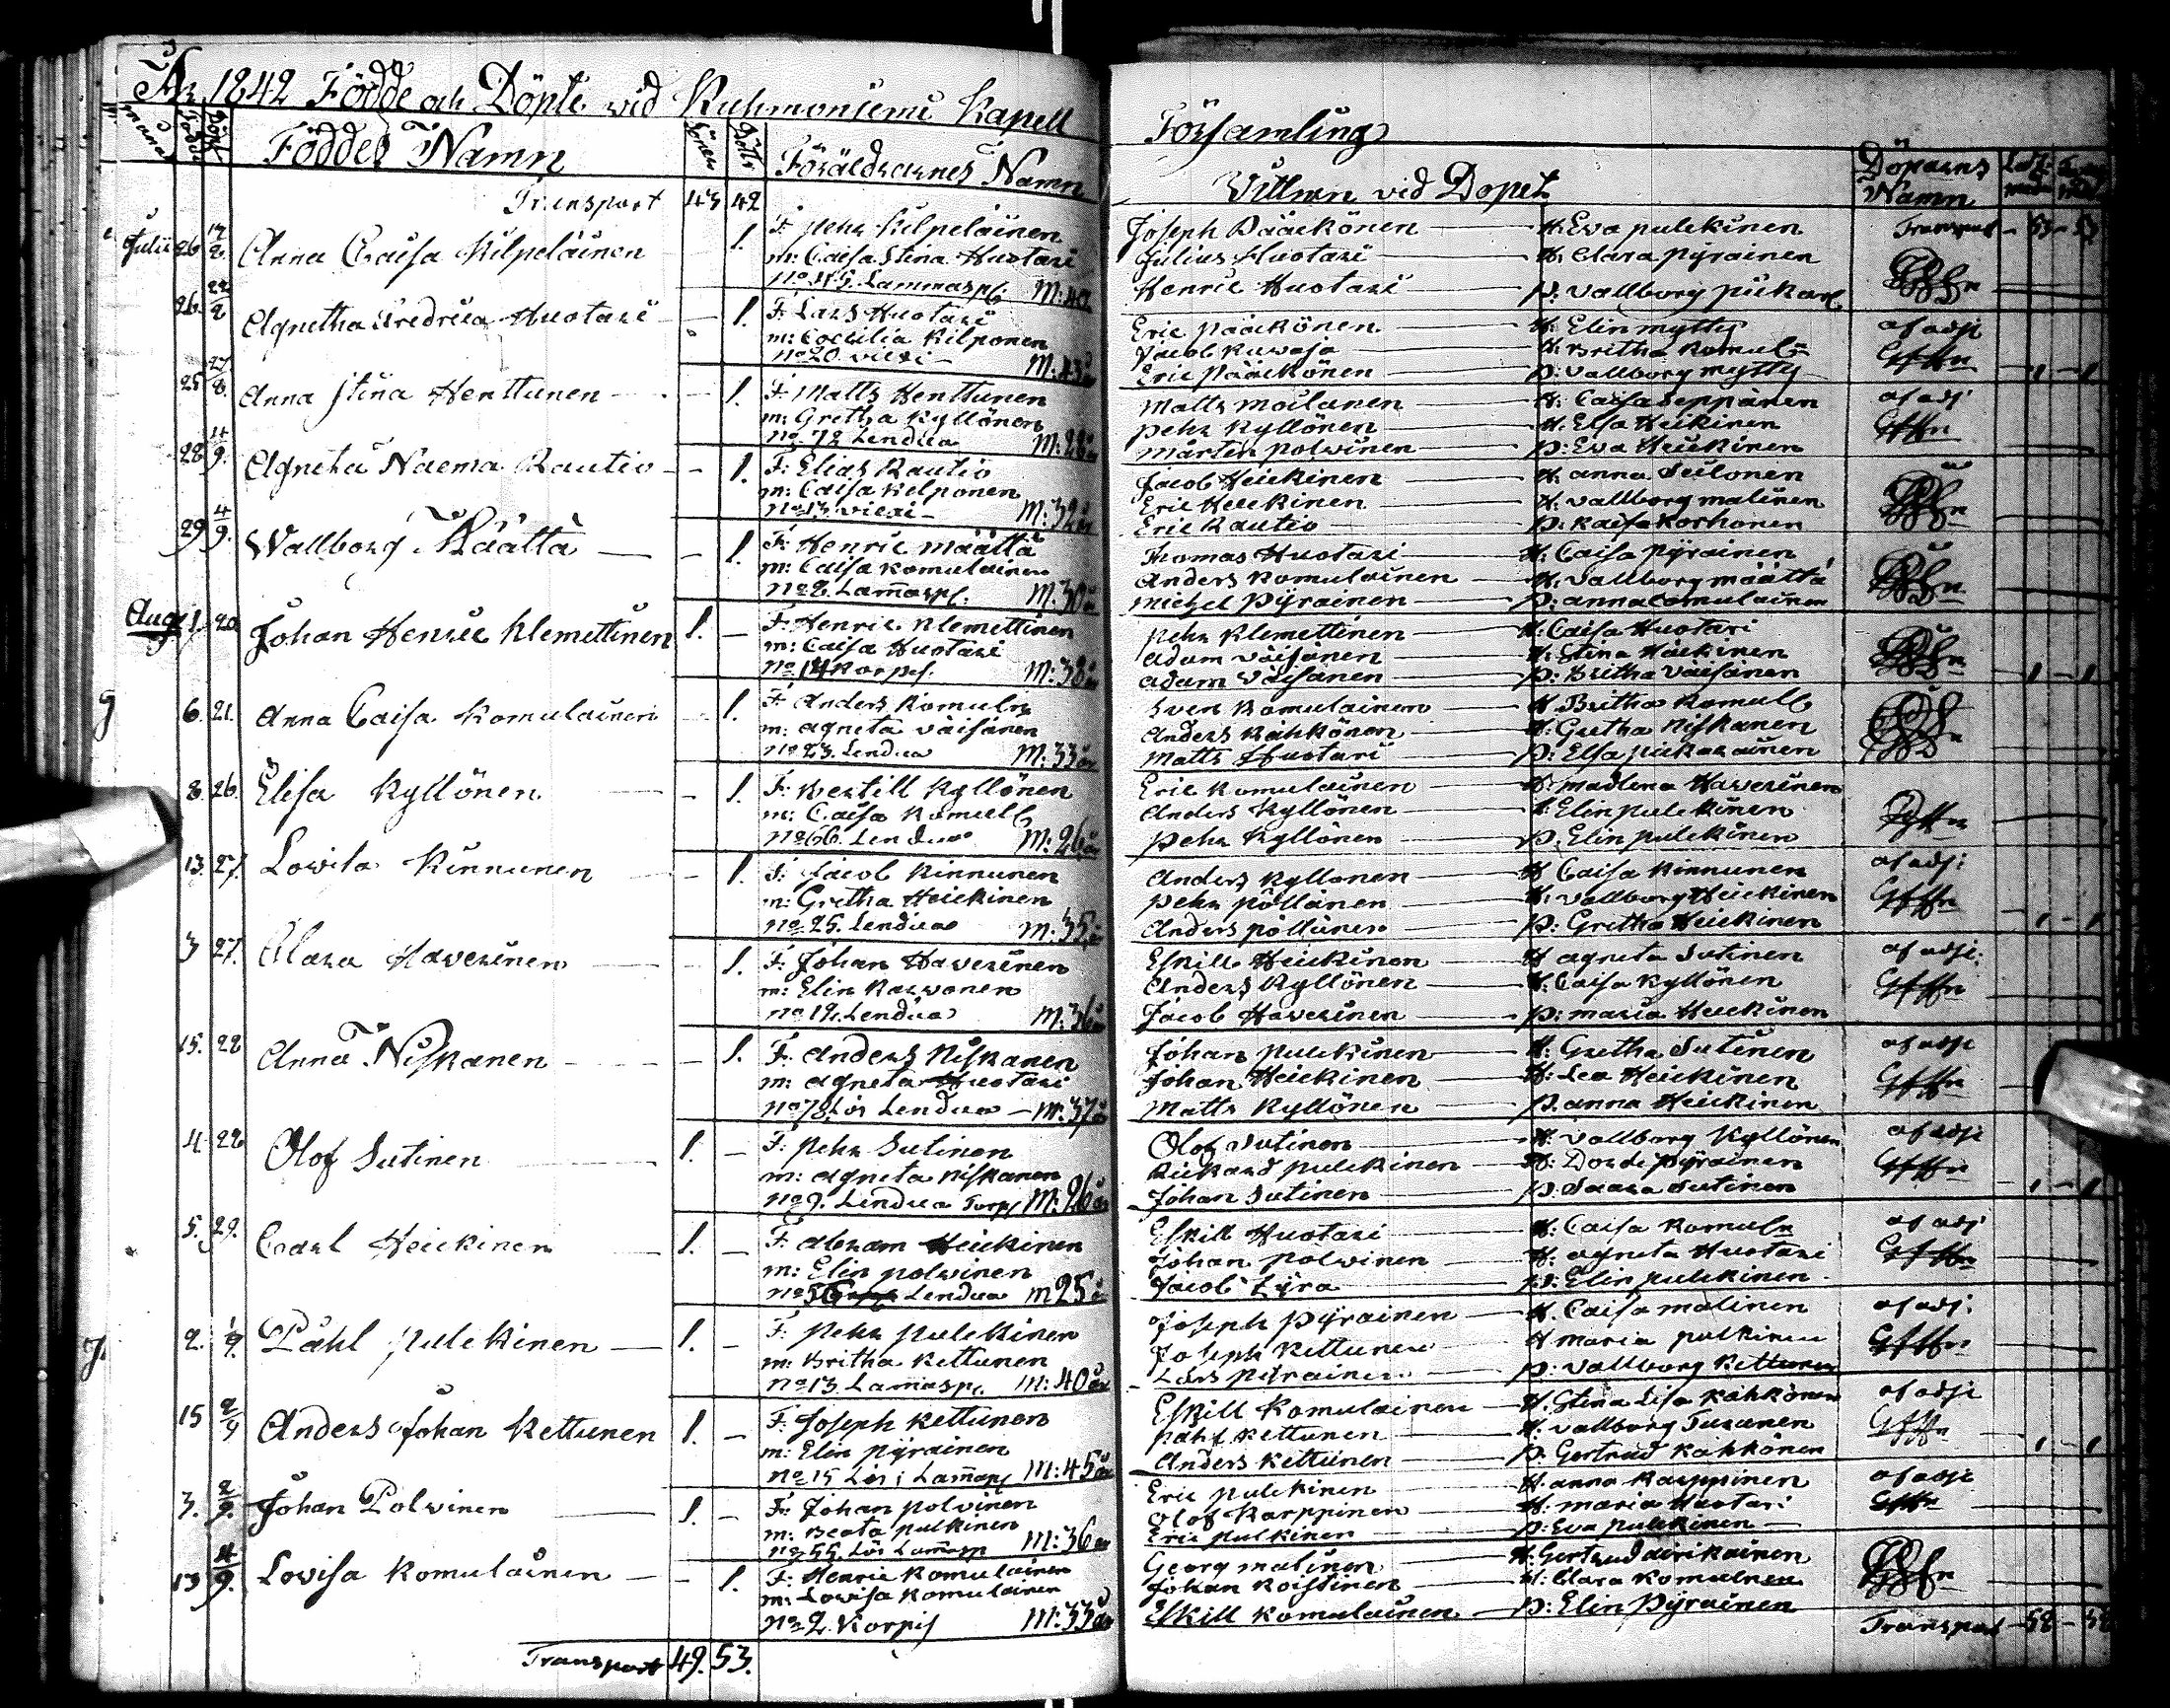 År 1842 Födde och Döpte vid Kuhmoniemi Kapell
Födde Döpt Föddes Namn Söner Döttr Föräldrarnes Namn
Transport 43 42
Julii 26 17/8 Anna Caisa Kilpeläinen 1. F: Pehr Kilpeläinen
m: Caisa Stina Huotari
No 45. Lammasp. M: 40
26. 22/8 Agnetha Fredrica Huotari 1. F: Lars Huotari
m: Coecilia Kilponen
No 20 Viexi M: 43 år
25 27/8. Anna Stina Henttunen 1. F: Matts Henttunen
m: Gretha Kyllönen
No. 72 Lendua M: 28 år
28 11/9. Agneta Naema Rautio 1. F: Elias Rautio
m: Caisa Kilponen
No 13 Viexi M: 32 år
29 4/9. Wallborg Määttä 1. F: Henric Määttä
m: Caisa Komulainen
No 2. Lam̄asp. M: 30 år
Aug 1. 20 Johan Henric Klemettinen 1. F: Henric Klemettinen
m: Caisa Huotari
No 14 Korpis. M: 38 år
6. 21. Anna Caisa Komulainen 1. F: Anders Komuln
m: Agneta Väisänen
No 23. Lendua M: 33 år
8. 26. Elisa Kyllönen 1. F: Bertill Kyllönen
m: Caisa Komull
No 66. Lendua M: 26 år
13. 27. Lovisa Kinnunen 1. F: Jacob Kinnunen
m: Gretha Heickinen
No 25. Lendua M: 35 å
3 27. Clara Haverinen 1. F: Johan Haverinen
m: Elin Karvonen
No 19. Lendua M: 36 år
15. 28 Anna Niskanen 1. F: Anders Niskanen
m: Agneta Huotari
No 78 Lös Lendua M: 37 år
4. 28 Olof Sutinen 1. F: Pehr Sutinen
m: Agneta Niskanen
No 9. Lendua Torp M: 26 år
5. 29. Carl Heickinen 1. F: Abram Heickinen
m: Elin Polvinen
No 56 Lendua M 25 å
2. 1/9. Påhl Pulckinen 1. F: Pehr Pulckinen
m: Britha Kettunen
No 13. Lam̄asp. M: 40 år
15 2/9 Anders Johan Kettunen 1. F: Joseph Kettunen
m: Elin Pyrainen
No 15 Lös i Lam̄asp M: 45 år
3. 2/9. Johan Polvinen 1. F: Johan Polvinen
m: Beata Pulkinen
No 55. Lös Lam̄asp M: 36 år
13 4/9. Lovisa Komulainen 1. F: Henric Komulainen
m: Lovisa Komulainen
No 2. Korpis M: 33 år
Transport 49. 53.
Församling
Vittnen vid Dopet Döparns Namn
Joseph Pääckönen H. Eva Pulckinen Transport 53 53
Julius Huotari H. Clara Pyrainen
Henric Huotari P. Vallborg Pickar
Eric Pääckönen H. Elin Mytty af adj
Jacob Kuvaja H. Britha Komul
Eric Pääckönen P: Vallborg Mytty 1 1
Matts Moilanen H: Caisa Seppänen af adj
Pehr Kyllönen H. Elsa Heikinen
Mårten Polvinen P: Eva Heickinen
Jacob Heickinen H. Anna Seilonen
Eric Heickinen H. Vallborg Malinen
Eric Rautio P. Kaisa Korhonen
Thomas Huotari H: Caisa Pyrainen
Anders Komulainen H. Vallborg Määttä
Michel Pyrainen P: Anna Comulainen
Pehr Klemettinen H: Caisa Huotari
Adam Väisänen H: Stina Häickinen
Adam Väisänen P: Britha Väisänen 1 1
Sven Komulainen H. Britha Komull
Anders Kähkönen H: Gretha Niskanen
Matts Huotari P: Elsa Pickarainen
Eric Komulainen H. Madlena Haverinen
Anders Kyllönen H. Elin Pulckinen
Pehr Kyllönen P. Elin Pulckinen
Anders Kyllönen H Caisa Kinnunen af adj:
Pehr Pöllänen H. Vallborg Heickinen
Anders Pöllänen P. Gretha Heickinen 1 1
Eskill Heickinen H Agneta Sutinen af adj:
Anders Kyllönen H. Caisa Kyllönen
Jacob Haverinen P: Maria Heickinen
Johan Pulckinen H: Gretha Sutinen af adj
Johan Heickinen H: Lea Heickinen
Matts Kyllönen P. Anna Heickinen
Olof Sutinen H: Vallborg Kyllönen af adj
Rickard Pulckinen H: Dorde Pyrainen
Johan Sutinen P. Saara Sutinen 1 1
Eskill Huotari H. Caisa Komuln af adj
Johan Polvinen H. Agneta Huotari
Jacob Zyra P: Elin Pulckinen
Joseph Pyrainen H. Caisa Malinen af adj.
Joseph Kettunen H Maria Pulkinen
Lars Pyrainen P: Vallborg Kettunen
Eskill Komulainen H. Stina Lisa Kähkönen af adj
Påhl Kettunen H. Vallborg Turunen
Anders Kettunen P. Gertrud Kähkönen 1 1
Eric Pulckinen H. Anna Karppinen af adj
Olof Karppinen H: Maria Huotari
Eric Pulkinen P: Eva Pulckinen
Georg Malinen H: Gertrud Airikainen
Johan Koistinen H: Clara Komulnen
Eskill Komulainen P: Elin Pyrainen
Transport 58 58